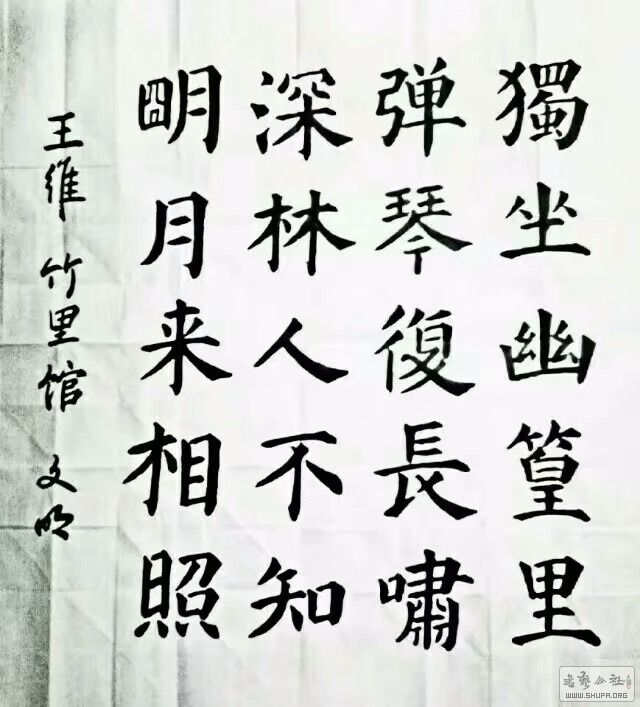 獨坐幽篁里
弹琴復長嘯
深林人不知
明月来相照
王维 竹里馆 文明
书艺公社
WWW.SHUFA.ORG